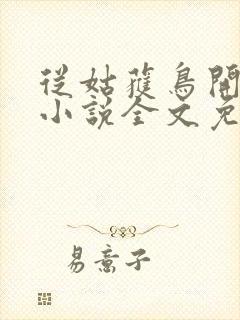 從姑獲鳥開
小說全文免
易意子